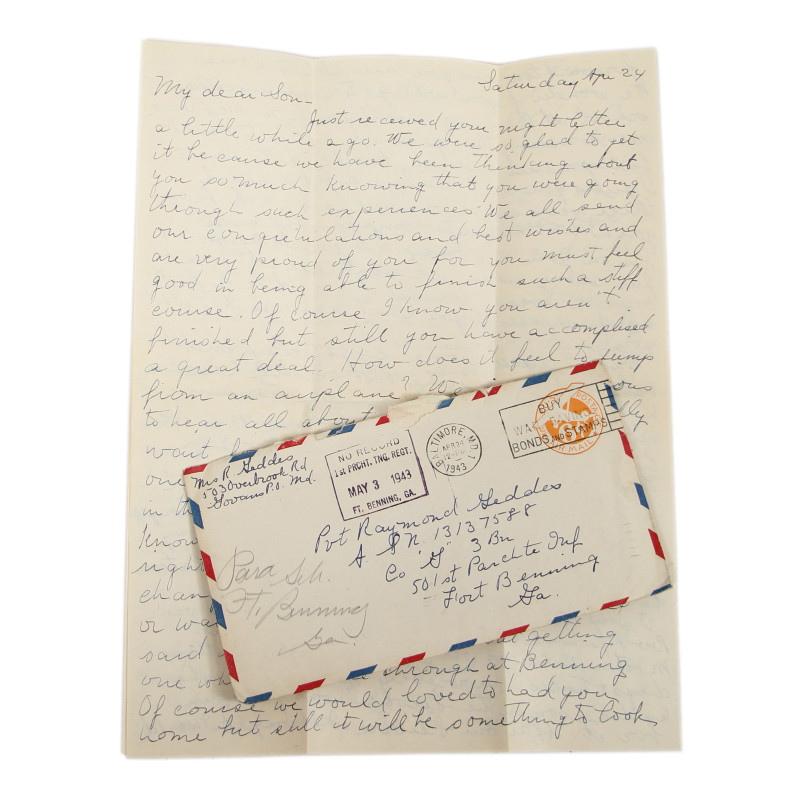 Saturday Apr 24
My dear Son-
Just received your night letter
a little while ago. We were so glad to get
it because we have been thinking about
you so much knowing that you were going
through such experiences We all send
our congratulations and best wishes and
are very proud of you for you must feel
good in being able to finish such a stiff
course. Of course I know you aren't
finished but still you have accomplised
a great deal. How does it feel to jump
from an airplane? We
to hear all about
wait
one
in th
know
right
chan
or wa
said
getting
one wh through at Benning
Of course we would loved to had you
home but still it will be something to look
Mrs R. Geddes
503 Overbrook Rd
Govans P.O. Md.
NO RECORD
1st PRCHT. TNG. REGT.
MAY 3 1943
FT. BENNING, GA.
BALTIMORE, MD.
APR
1943
BUY
WA
BONDS AND STAMPS
AIR MAIL
Pvt Raymond Geddes
A.S.N. 13137588
Co "G" 3 Bn
501st Parchte Inf
Fort Benning
Ga.
Para Sch.
Ft. Benning
Ga.